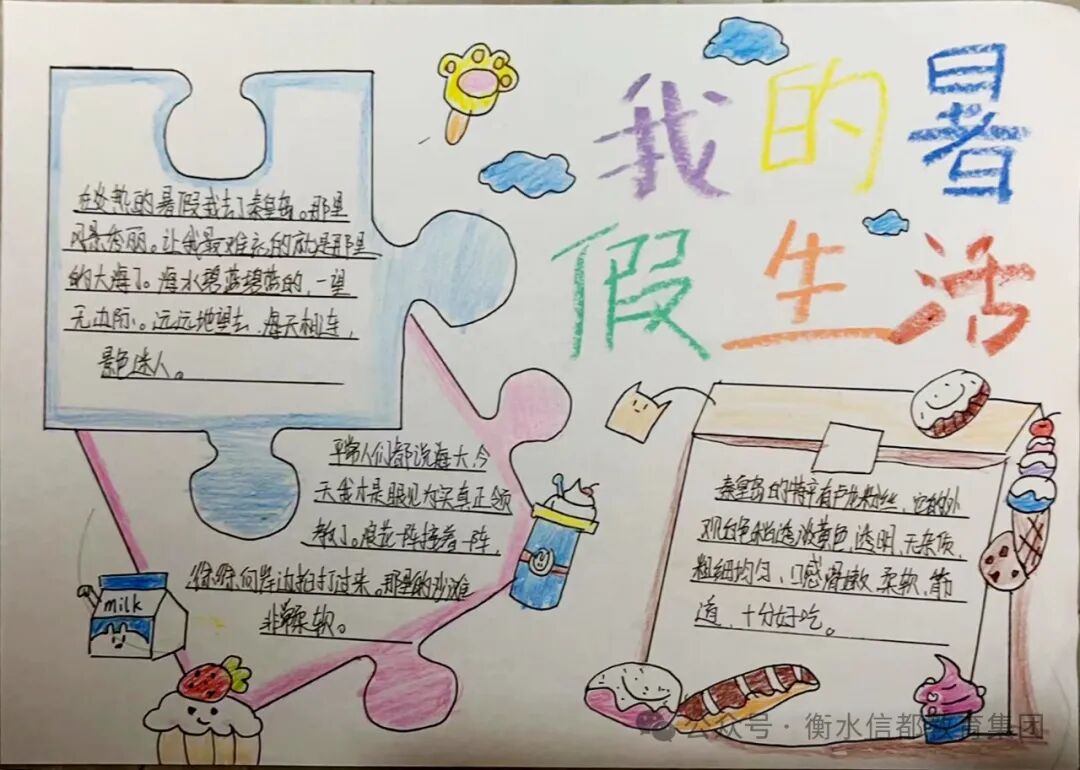 我的暑
假生活
在炎热的暑假我去了秦皇岛。那里
风景秀丽。让我最难忘的就是那里
的大海了。海水碧蓝碧蓝的，一望
无边际。远远地望去，海天相连，
景色迷人。
平常人们都说海大，今
天我才是眼见为实真正领
教了。浪花一阵接着一阵，
“哗哗”向岸边拍打过来。那里的沙滩
非常柔软。
秦皇岛的特产有卢龙粉丝，它的外
观白色稍透淡黄色，透明，无杂质，
粗细均匀，口感滑嫩，柔软，筋
道，十分好吃。
milk
公众号·衡水信都教育集团